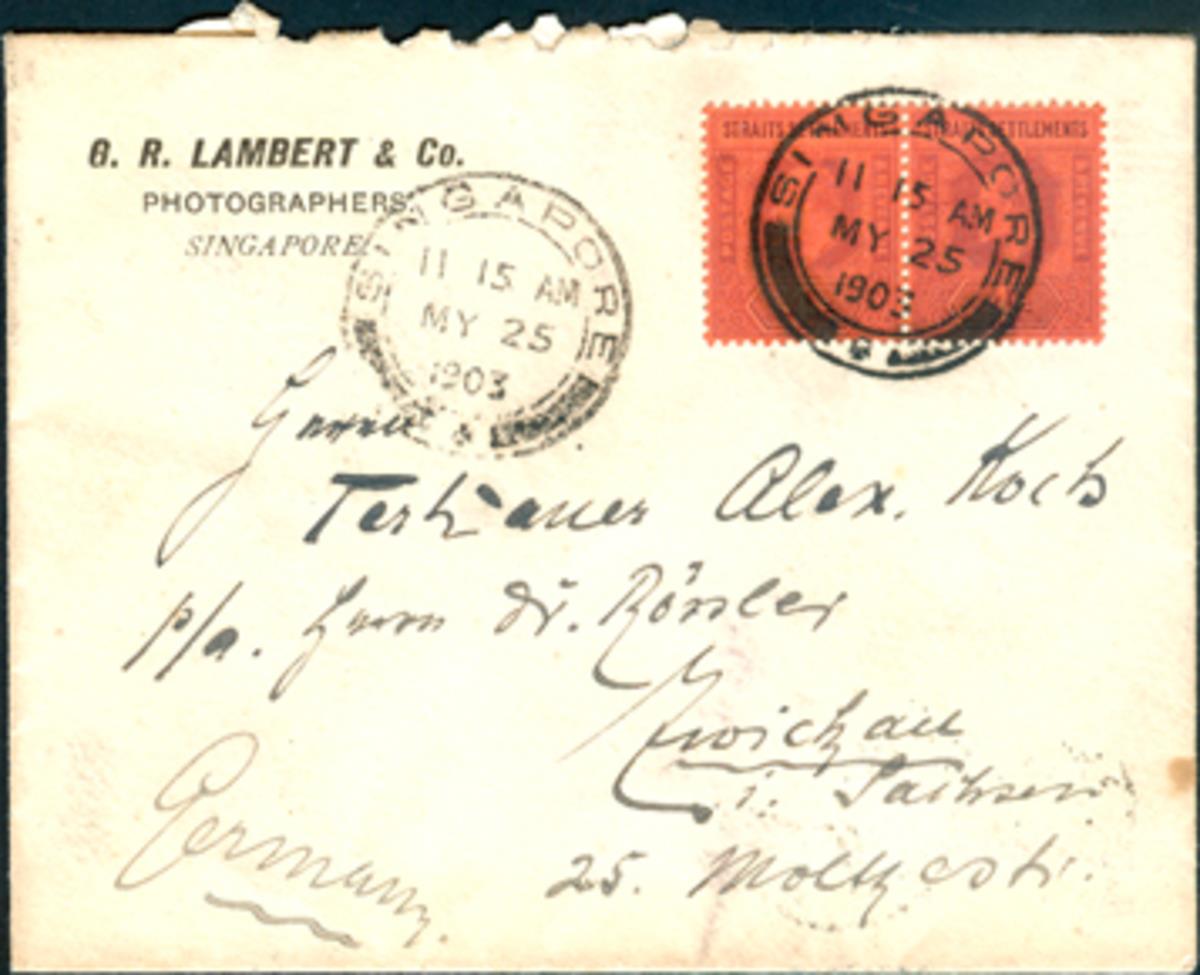 G. R. LAMBERT & Co.
PHOTOGRAPHERS,
SINGAPORE.
STRAITS SETTLEMENTS
STRAITS SETTLEMENTS
SINGAPORE
11 15 AM
MY 25
1903
SINGAPORE
11 15 AM
MY 25
1903
Herrn
Alex. Koch
p/a. Herrn Dr. Rössler
Zwickau
i. Sachsen
25. Moltkestr.
Germany.